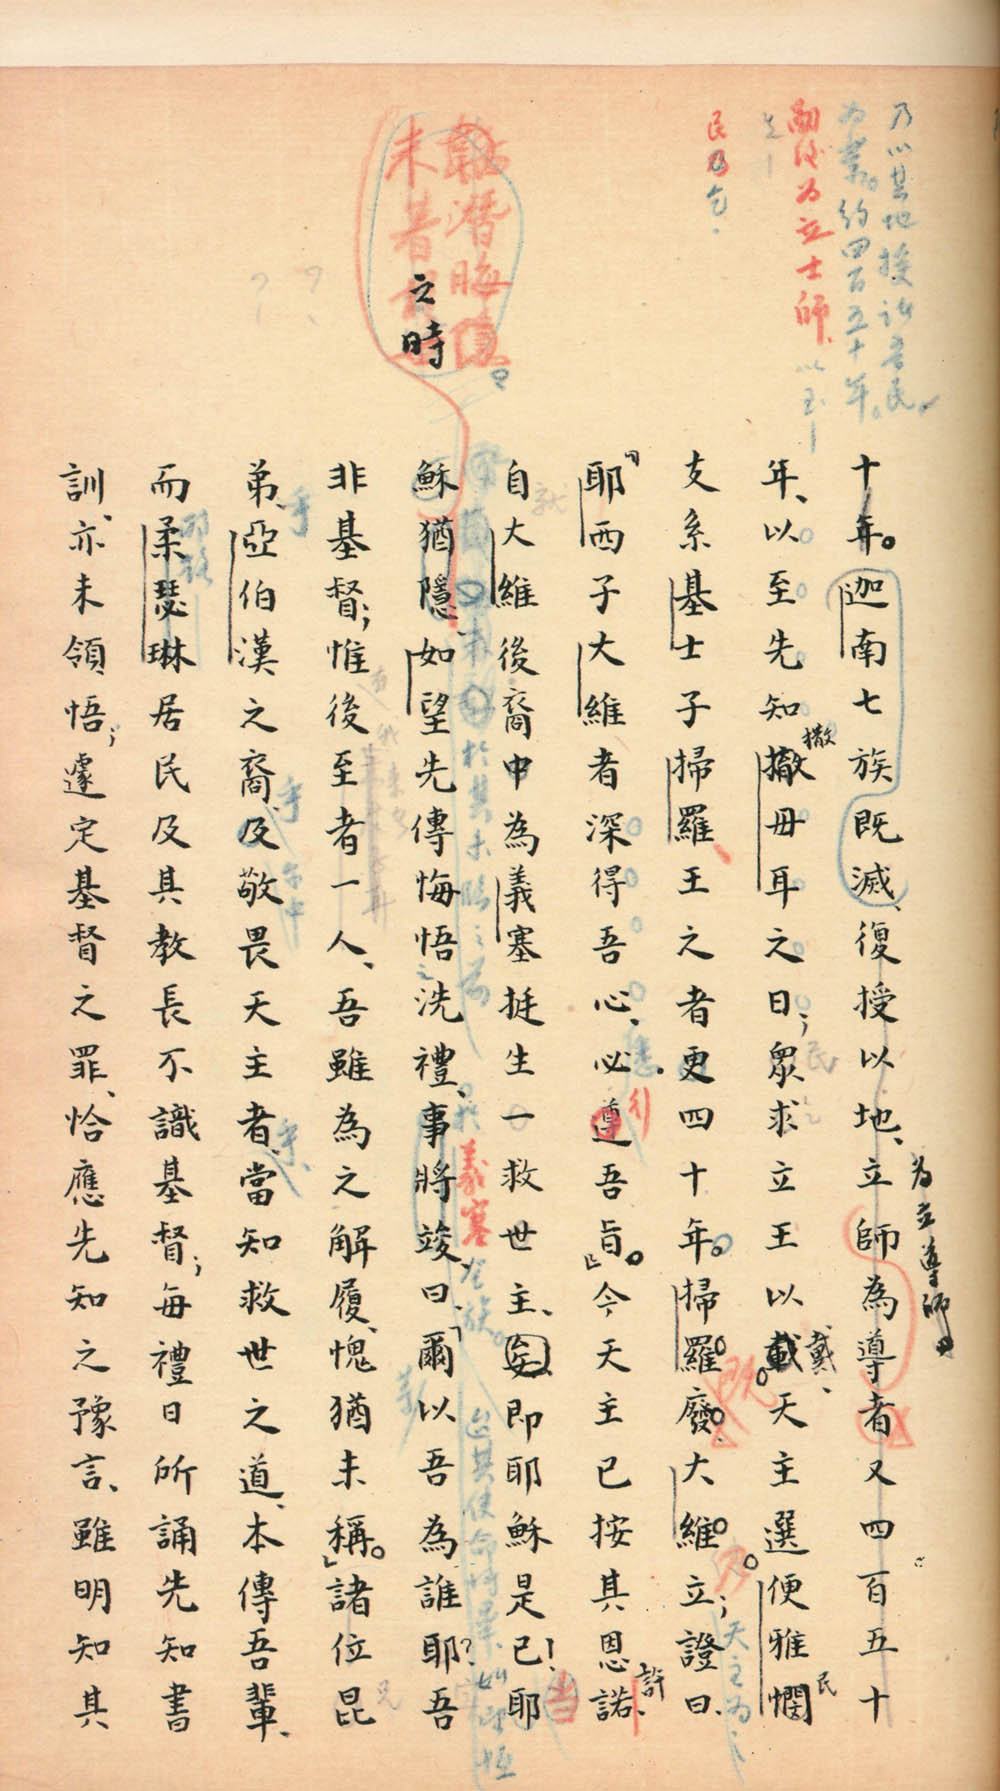 十年。迦南七族既滅、復授以地、立師為導者又四百五十
年、以至先知撒毋耳之日；眾求立王以載天主選便雅憫
支系基士子掃羅王之者更四十年。掃羅廢、大維立；證曰、
「耶西子大維者深得吾心、必遵吾旨。」今天主已按其恩諾、
自大維後裔中為義塞挺生一救世主、即耶穌是已！耶
穌猶隱、如望先傳悔悟之洗禮、事將竣、曰、「爾以吾為誰耶？吾
非基督；惟後至者一人、吾雖為之解履、愧猶未稱。」諸位昆
弟、亞伯漢之裔、及敬畏天主者、當知救世之道、本傳吾輩、
而柔瑟琳居民及其教長不識基督；每禮日所誦先知書
訓、亦未領悟；遽定基督之罪、恰應先知之豫言、雖明知其
乃以其地授諸吾民。
為業。約四百五十年。
嗣後為立士師、
民乃乞
之時
為立導師
撒
戴、
民
許
引
既
乃
天主為
義塞
於其未臨之前